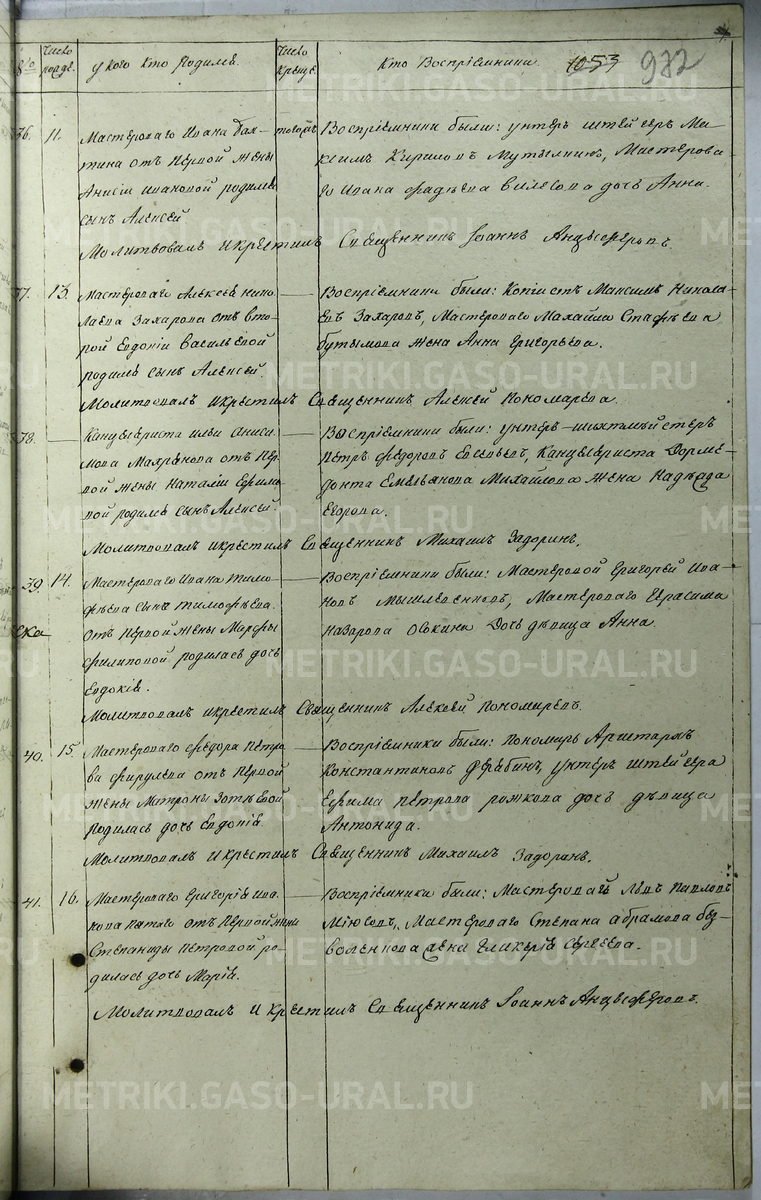 Число рожде.
У кого кто родился.
Число креще.
Кто Восприемники.
1053 972
36. 11. Мастероваго Ивана Бах-
тина отъ первой жены
Анисьи Ивановой родился
сынъ Алексей
Восприемники были: унтеръ штейгеръ Ма-
ксимъ Кириловъ Мутылкинъ, Мастерова-
го Ивана Фадѣева дочь Анна.
Молитвовалъ и крестилъ Священникъ Іоаннъ Анцыферовъ.
37. 13. Мастероваго Алексея Нико-
лаева Захарова отъ вто-
рой Евдокіи Васильевой
родился сынъ Алексей.
Восприемники были: Копіистъ Максимъ Никола-
евъ Захаровъ, Мастероваго Михайла
жена Анна Григорьева.
Молитвовалъ и крестилъ Священникъ Алексей Пономаревъ.
38. Канцеляриста Ильи Аниси-
мова отъ пер-
вой жены Наталіи Ефимо-
вой родился сынъ Алексей.
Восприемники были: унтеръ-шихтмейстеръ
Петръ Федоровъ Канцеляриста Дорме-
донта Емельянова Михайлова жена Надежда
Егорова.
Молитвовалъ и крестилъ Священникъ Михаилъ Задоринъ.
39. 14. Мастероваго Ивана Тимо-
фѣева сына Тимофѣева
отъ первой жены Марфы
Филиповой родилась дочь
Евдокія.
Восприемники были: Мастеровой Григорей Ива-
новъ Мастероваго Герасима
Назарова Осокина дочь дѣвица Анна.
Молитвовалъ и крестилъ Священникъ Алексей Пономаревъ.
40. 15. Мастероваго Федора Петро-
ва отъ первой
жены Матроны Зотѣевой
родилась дочь Евдокія.
Восприемники были: Пономарь Аристархъ
Константиновъ унтеръ штейгера
Ефима Петрова Рожкова дочь дѣвица
Антонида.
Молитвовалъ и крестилъ Священникъ Михаилъ Задоринъ.
41. 16. Мастероваго Григорія Ива-
нова отъ первой жены
Степаниды Петровой ро-
дилась дочь Марія.
Восприемники были: Мастероваго Левъ Павловъ
Мастероваго Степана Абрамова
жена Гликерія Сергеева.
Молитвовалъ и крестилъ Священникъ Іоаннъ Анцыферовъ.
METRIKI.GASO-URAL.RU